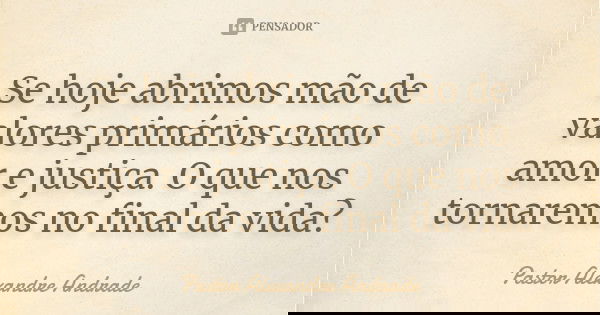 PENSADOR
Se hoje abrimos mão de
valores primários como
amor e justiça. O que nos
tornaremos no final da vida?
Pastor Alexandre Andrade